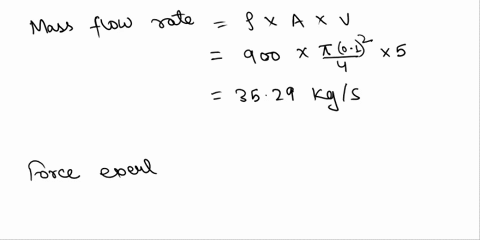 Mass flow rate = ρ × A × V
= 900 × π(0.1)²/4 × 5
= 35.29 kg/s
Force exerl